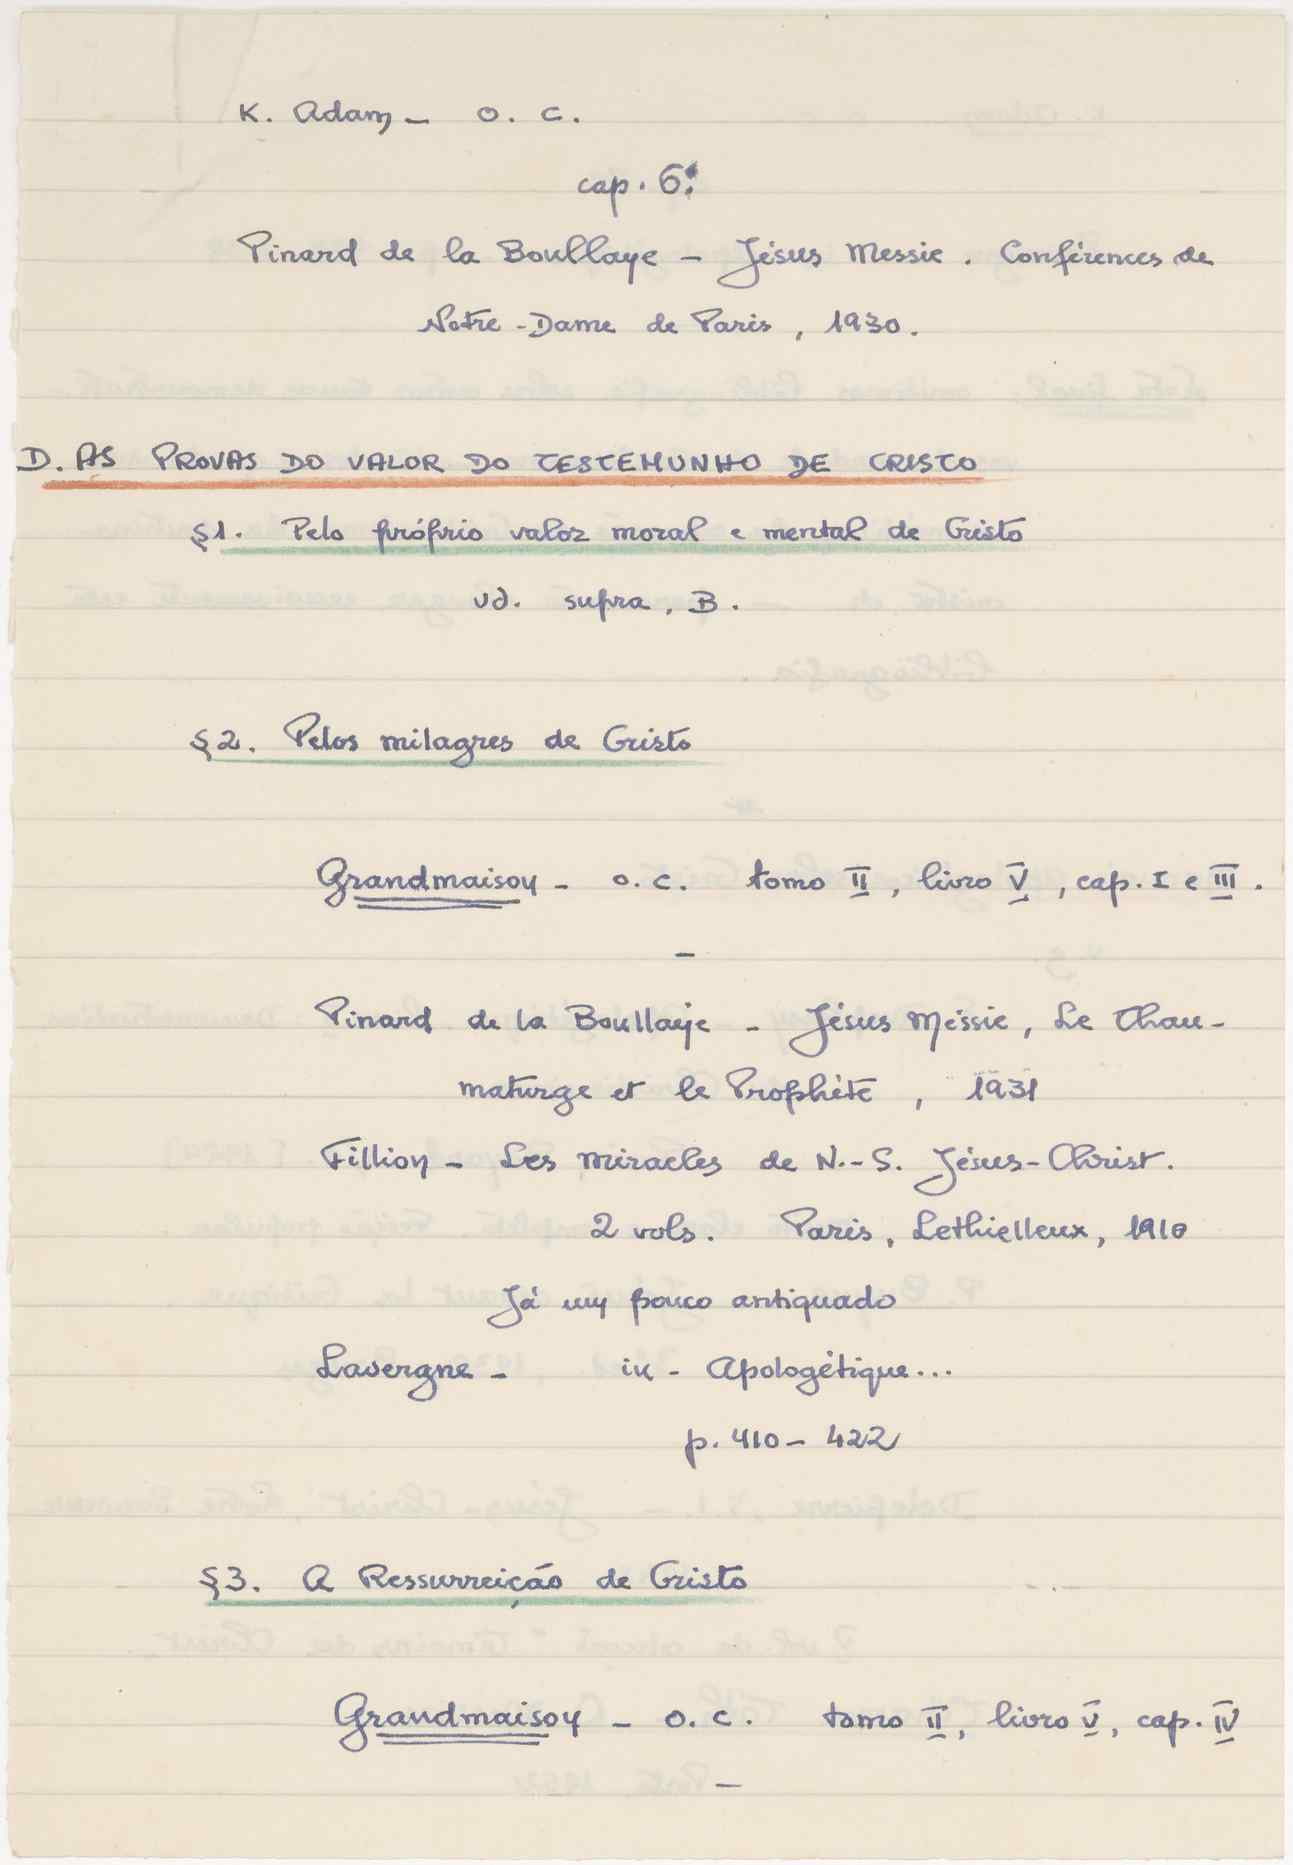 K. Adam – o. c.
cap. 6º
Pinard de la Boullaye – Jésus Messie. Conférences de
Notre-Dame de Paris, 1930.
D. AS PROVAS DO VALOR DO TESTEMUNHO DE CRISTO
§1. Pelo próprio valor moral e mental de Cristo
vd. supra, B.
§2. Pelos milagres de Cristo
Grandmaison – o. c. tomo II, livro V, cap. I e III.
–
Pinard de la Boullaye – Jésus Méssie, Le Thau-
maturge et le Prophète, 1931
Fillion – Les miracles de N.-S. Jésus-Christ.
2 vols. Paris, Lethielleux, 1910
Já um pouco antiquado
Lavergne – in – Apologétique...
p. 410 – 422
§3. A Ressurreição de Cristo
Grandmaison – o. c. tomo II, livro V, cap. IV
–